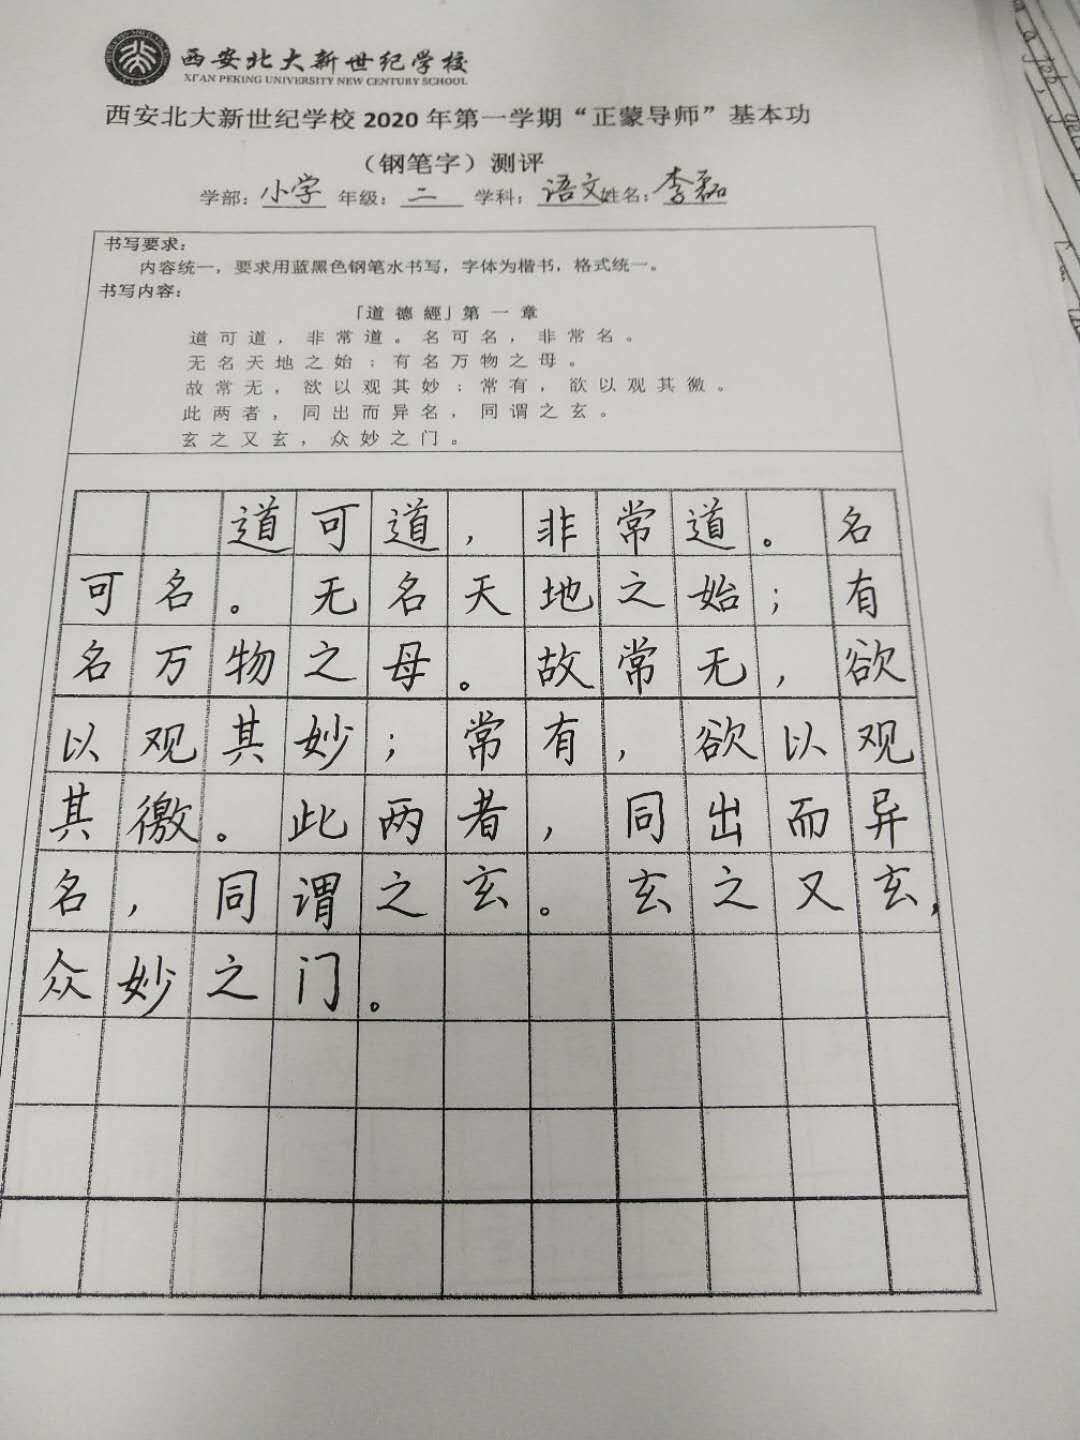 西安北大新世纪学校
XI'AN PEKING UNIVERSITY NEW CENTURY SCHOOL
西安北大新世纪学校2020年第一学期“正蒙导师”基本功
（钢笔字）测评
学部：小学 年级：二 学科：语文 姓名：李磊
书写要求：
内容统一，要求用蓝黑色钢笔水书写，字体为楷书，格式统一。
书写内容：
「道德經」第一章
道可道，非常道。名可名，非常名。
无名天地之始；有名万物之母。
故常无，欲以观其妙；常有，欲以观其徼。
此两者，同出而异名，同谓之玄。
玄之又玄，众妙之门。
道可道，非常道。名
可名。无名天地之始；有
名万物之母。故常无，欲
以观其妙；常有，欲以观
其徼。此两者，同出而异
名，同谓之玄。玄之又玄，
众妙之门。